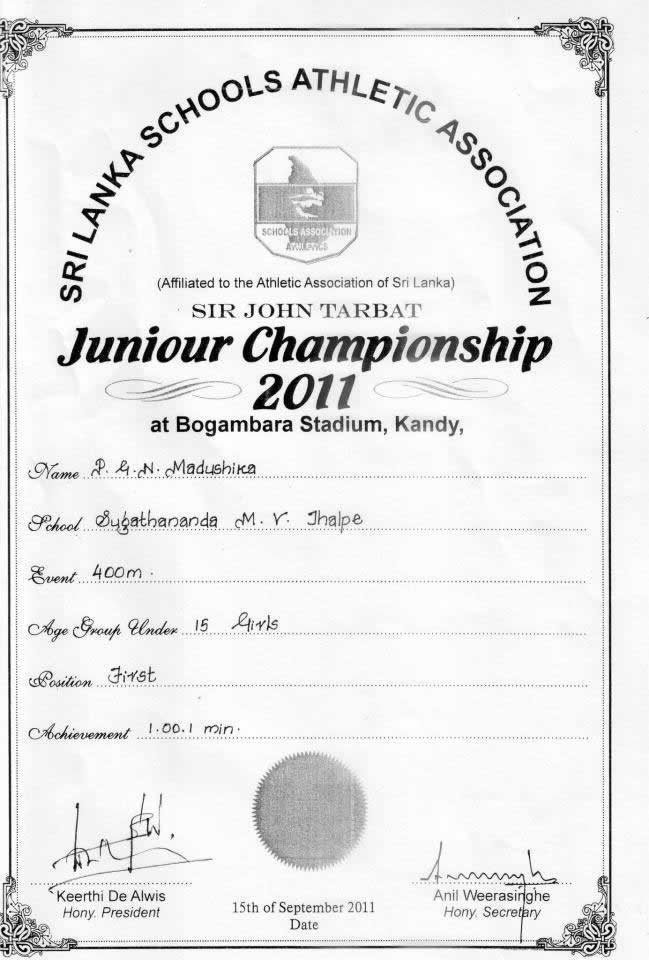 SRI LANKA SCHOOLS ATHLETIC ASSOCIATION
SCHOOLS ASSOCIATION
ATHLETICS
(Affiliated to the Athletic Association of Sri Lanka)
SIR JOHN TARBAT
Juniour Championship
2011
at Bogambara Stadium, Kandy,
Name P. G. N. Madushika
School Sugathananda M. V. Ihalpe
Event 400m.
Age Group Under 15 Girls
Position First
Achievement 1.00.1 min.
Keerthi De Alwis
Hony. President
15th of September 2011
Date
Anil Weerasinghe
Hony. Secretary